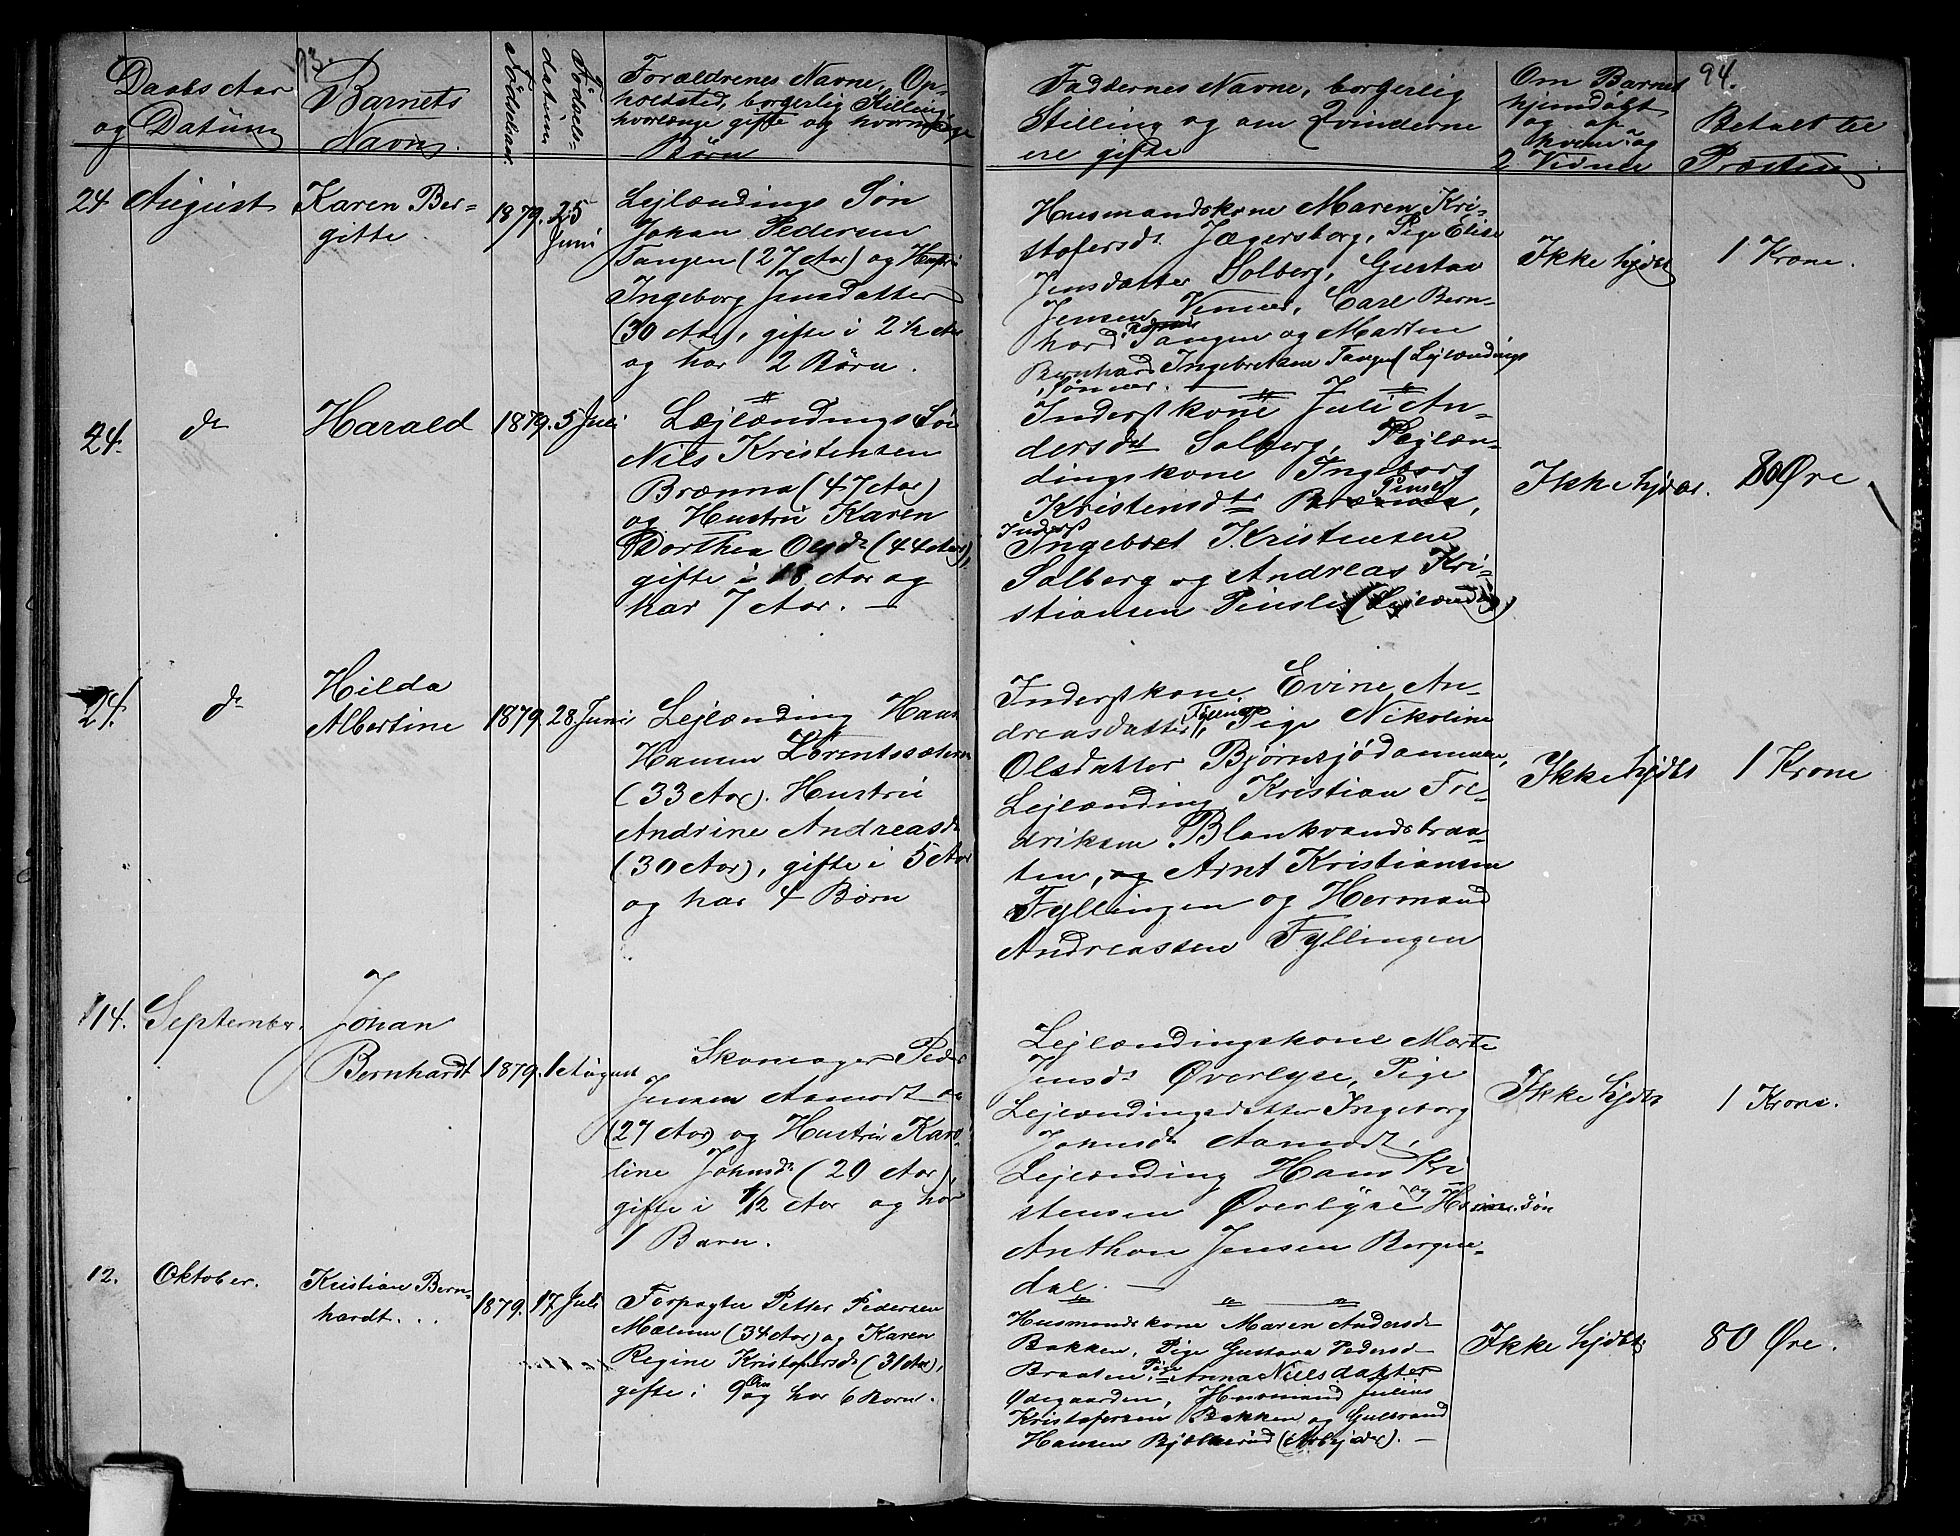 93.
Daabs Aar
og Datum
Barnets
Navn.
Fødselsaar.
Fødsels-
datum
Forældrenes Navne, Op-
holdsted, borgerlig Stilling
hvorlænge gifte og hvormange
Børn
24 August
Karen Ber-
gitte
1879.
25
Juni
Lejlændings Søn
Johan Pedersen
Tangen (27 Aar) og Hustru
Ingeborg Jensdatter
(30 Aar), gifte i 2½ Aar
og har 2 Børn.
24. do
Harald
1879. 5 Juli
Lejlændings Søn
Nils Kristensen
Brænna (47 Aar)
og Hustru Karen
Dorthea Olsdr (44 Aar),
gifte i 18 Aar og
har 7 Aar. —
24. do
Hilda
Albertine
1879. 28. Juni
Lejlænding Hans
Hansen Lorentssæteren
(33 Aar). Hustru
Andrine Andreasdr
(30 Aar), gifte i 5 Aar
og har 4 Børn
14. September.
Johan
Bernhardt
1879. 1 August
Skomager Peder
Jensen Aamodt
(27 Aar) og Hustru Karo-
line Johnsdr (20 Aar),
gifte i ½ Aar og har
1 Barn.
12. Oktober.
Kristian Bern-
hardt. . .
1879. 17 Juli
Forpagter Petter Pedersen
Mælum (34 Aar) og Karen
Regine Kristofersdr (31 Aar),
gifte i 9 Aar og har 6 Børn.
94.
Faddernes Navne, borgerlig
Stilling og om Qvinderne
ere gifte
Om Barnet
hjemdøbt
og af
hvem og
2 Vidner
Betalt til
Præsten
Husmandskone Maren Kri-
stofersdr Jægersborg, Pige Elise
Jensdatter Solberg, Gustav
Jensen Carl Bern-
hard Tangen og Marten
Bernhard Ingebretsen Tangen (Lejlændings
Sønner. —
Ikke hjdbt
1 Krone.
Inderstkone Juli An-
dersdt Solberg, Lejlæn-
dingskone Ingeborg
Kristensdtr Pinsle,
Inderst
Ingebret Kristensen
Solberg og Andreas Kri-
stiansen Pinsle (Lejlænding)
Ikke hjdbt.
80 Øre.
Inderstkone Evine An-
dreasdatter Fyllingen, Pige Nikoline
Olsdatter Bjørnsjødammen,
Lejlænding Kristian Fre-
driksen Blankvandsbraa-
ten, og Arnt Kristiansen
Fyllingen og Herman
Andreassen Fyllingen
Ikke hjdbt
1 Krone
Lejlændingskone Marte
Jensdr Øverlyse, Pige
Lejlændingsdatter Ingeborg
Johnsdr Aamodt,
Lejlænding Hans Kri-
stensen Øverlyse og Husm. Søn
Anthon Jensen Bergen-
dal. —
Ikke hjdbt
1 Krone.
Husmandskone Maren Andersdr
Bakken, Pige Gustava Pedersd
Braaten, Pige Anna Nielsdatter
Ødegaarden, Husmand Julius
Kristofersen Bakken og Gulbrand
Hansen Bjølkerud (Arbejder). —
Ikke hjdbt
80 Øre.